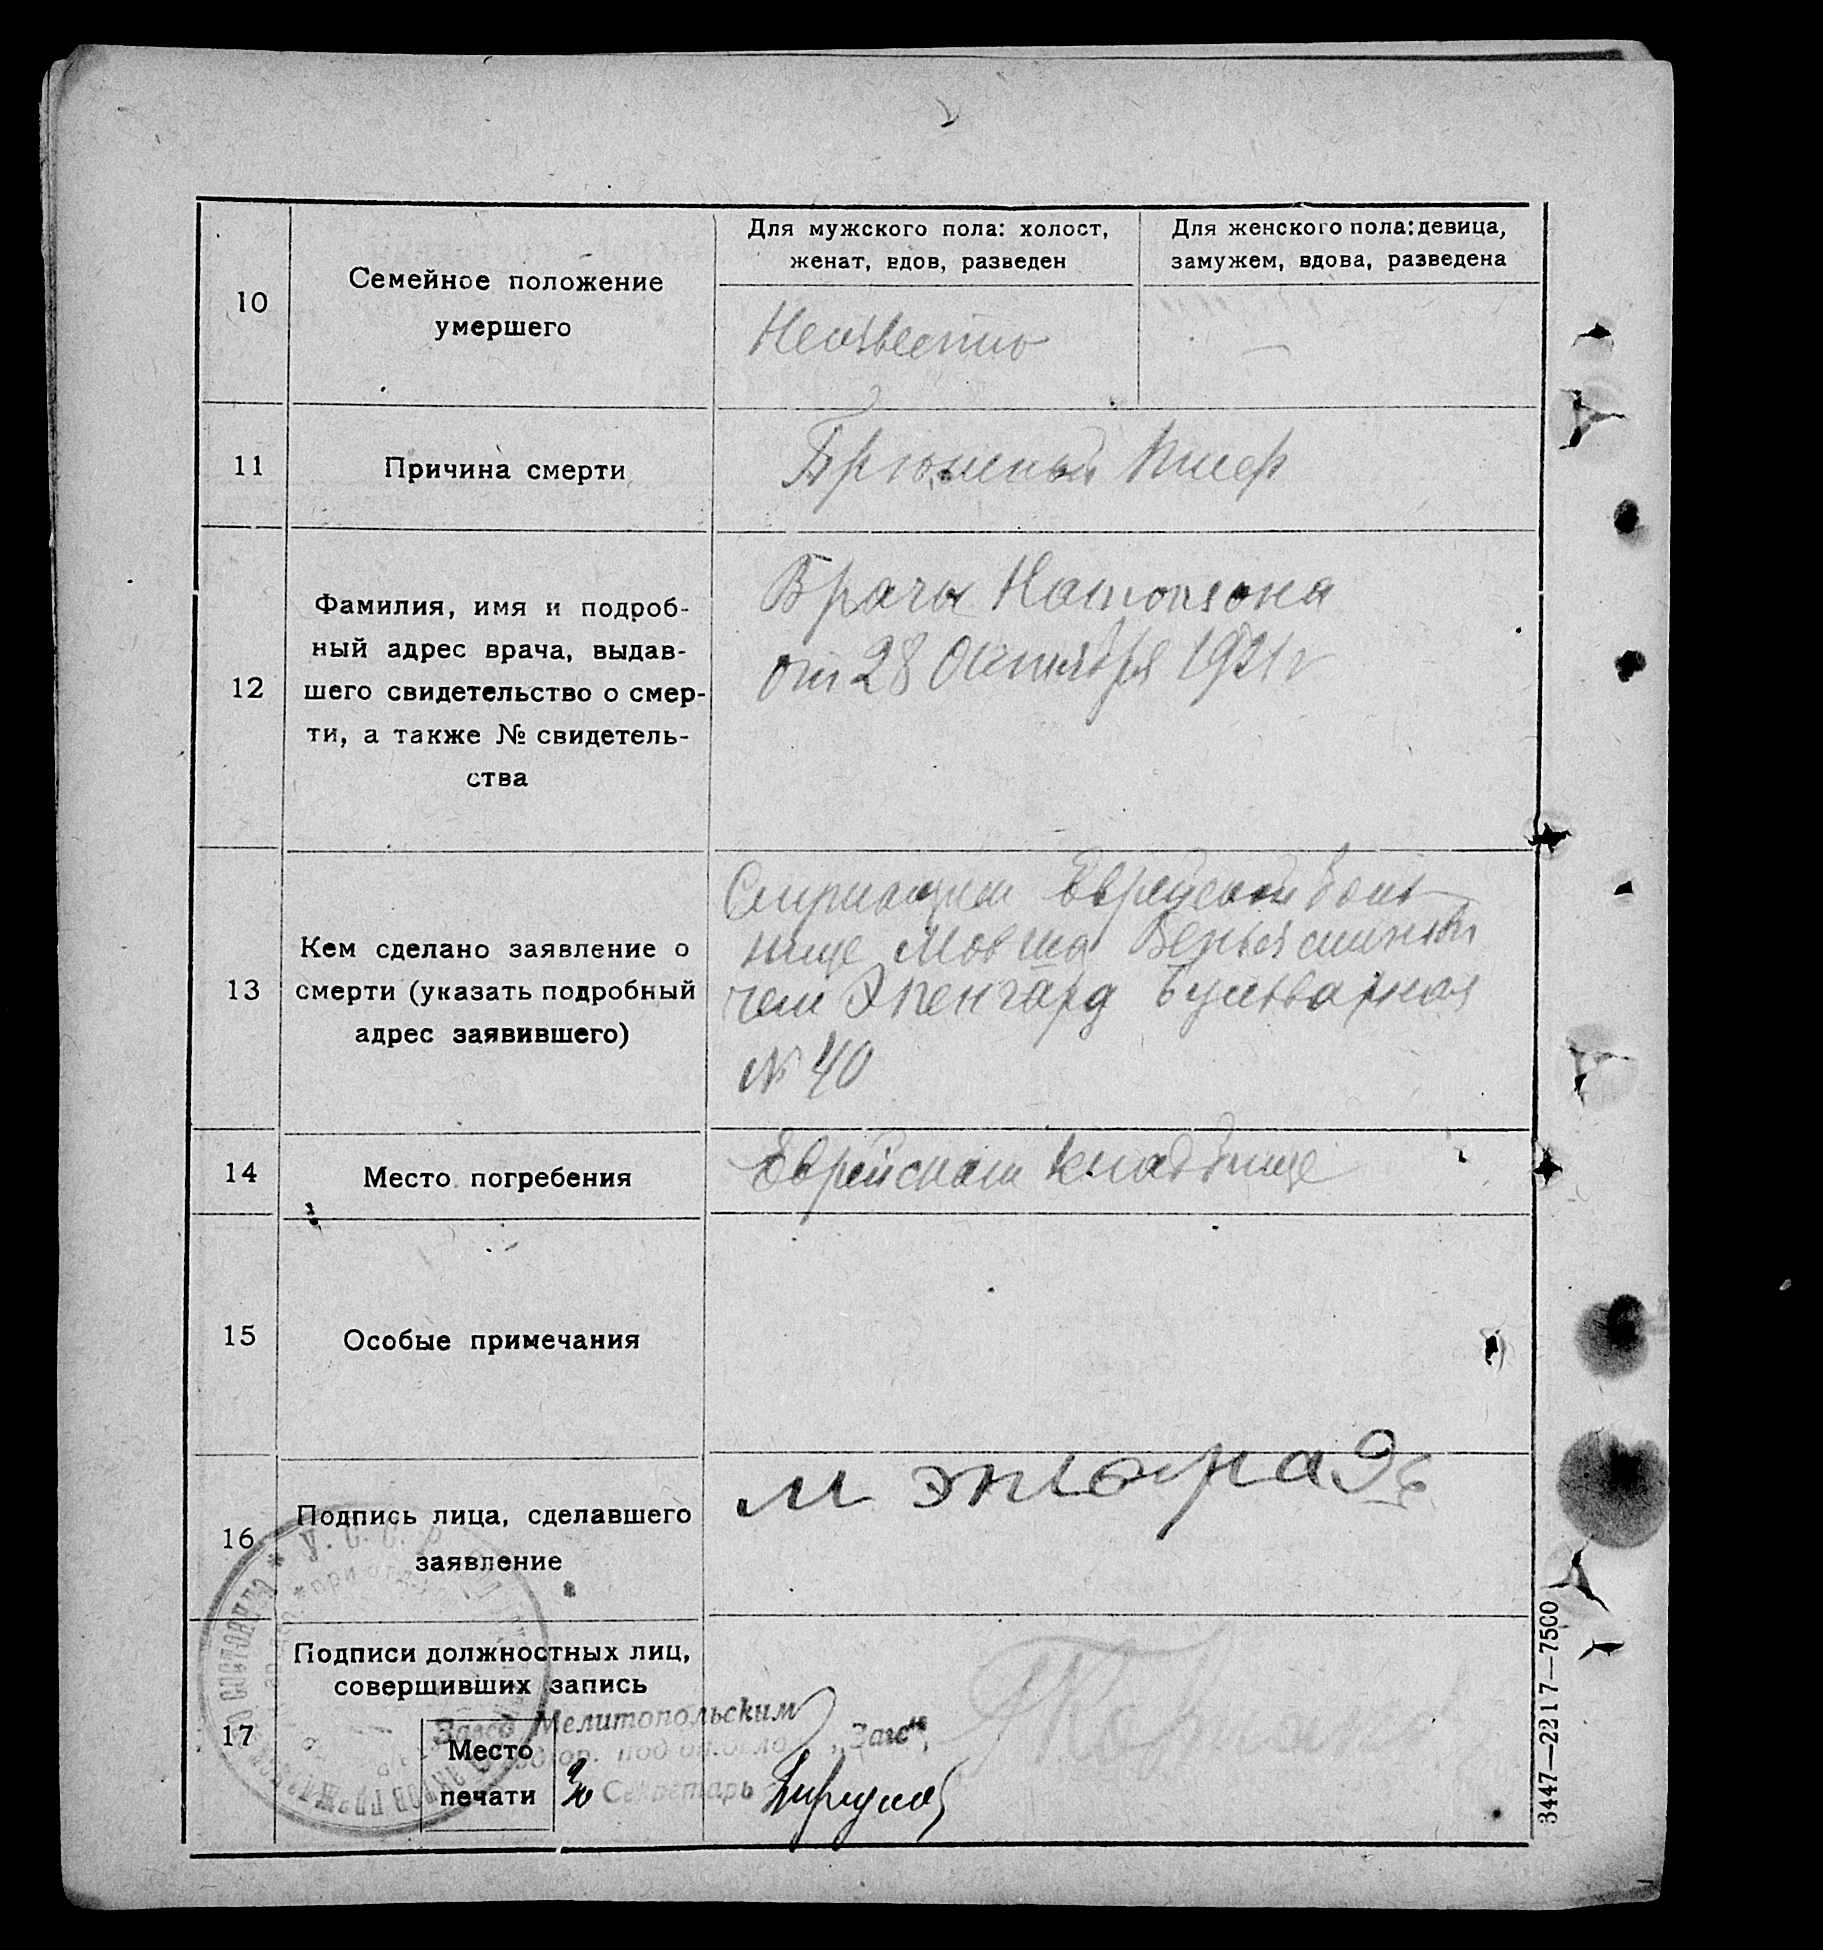 10
Семейное положение
умершего
Для мужского пола: холост,
женат, вдов, разведен
Для женского пола: девица,
замужем, вдова, разведена
Неизвестно
—
11
Причина смерти
Брюшной тиф
12
Фамилия, имя и подроб-
ный адрес врача, выдав-
шего свидетельство о смер-
ти, а также № свидетель-
ства
Врача Натонзона
от 28 Октября 1921 г
13
Кем сделано заявление о
смерти (указать подробный
адрес заявившего)
Еврейской боль-
нице Мовша Беньяминови
чем Эпенгард Бульварная
№ 40
14
Место погребения
Еврейском кладбище
15
Особые примечания
16
Подпись лица, сделавшего
заявление
М
17
Подписи должностных лиц,
совершивших запись
Место
печати
У. С. С. Р.
Мелитопольским
под отдело „Загс“
Секретарь
3447—2217—7500